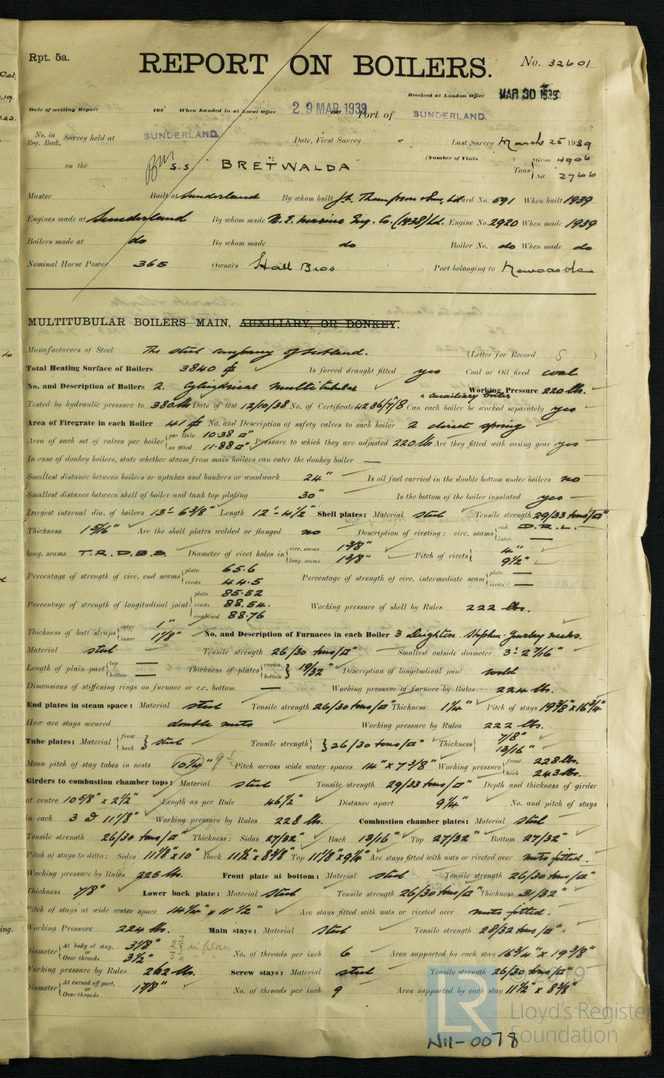 Rpt. 5a.
REPORT ON BOILERS.
No. 32601
Received at London Office MAR 30 1939
Date of writing Report 193 When handed in at Local Office 29 MAR 1939 Port of SUNDERLAND.
No. in Reg. Book. Survey held at SUNDERLAND. Date, First Survey Last Survey March 25 1939
on the S.S "BRETWALDA" (Number of Visits Gross 4906
Tons Net 2766
Master Built at Sunderland By whom built J.L. Thompson & Sons, Ltd Yard No. 591 When built 1939
Engines made at Sunderland By whom made N.E. Marine Eng. Co. (1938) Ltd. Engine No. 2920 When made 1939
Boilers made at do By whom made do Boiler No. do When made do
Nominal Horse Power 365 Owners Hall Bros Port belonging to Newcastle
MULTITUBULAR BOILERS MAIN, AUXILIARY OR DONKEY.
Manufacturers of Steel The Steel Company of Scotland. (Letter for Record S)
Total Heating Surface of Boilers 3840 Is forced draught fitted yes Coal or Oil fired coal
No. and Description of Boilers 2. Cylindrical multitubular & auxiliary boiler Working Pressure 220 lbs.
Tested by hydraulic pressure to 380 lbs Date of test 12/10/38 No. of Certificate 4236/7/8 Can each boiler be worked separately yes
Area of Firegrate in each Boiler 41 No. and Description of safety valves to each boiler 2 direct spring
Area of each set of valves per boiler { per Rule 10.38 □" as fitted 11.88 □" Pressure to which they are adjusted 220 lbs Are they fitted with easing gear yes
In case of donkey boilers, state whether steam from main boilers can enter the donkey boiler —
Smallest distance between boilers or uptakes and bunkers or woodwork 24" Is oil fuel carried in the double bottom under boilers no
Smallest distance between shell of boiler and tank top plating 30" Is the bottom of the boiler insulated yes
Largest internal dia. of boilers 13'-6 3/8" Length 12'-4 1/2" Shell plates: Material steel Tensile strength 29/33 tons/□"
Thickness 1 5/16" Are the shell plates welded or flanged no Description of riveting: circ. seams { end D.R.L. inter. —
long. seams T.R.D.B.S. Diameter of rivet holes in { circ. seams 1 3/8" long. seams 1 3/8" Pitch of rivets { 4" 9 1/2"
Percentage of strength of circ. end seams { plate 65.6 rivets 44.5 Percentage of strength of circ. intermediate seam { plate — rivets —
Percentage of strength of longitudinal joint { plate 85.52 rivets 88.54. combined 88.76 Working pressure of shell by Rules 222 lbs.
Thickness of butt straps { outer 1" inner 1 1/8" No. and Description of Furnaces in each Boiler 3 Deighton. Stephen-Gourlay necks.
Material steel Tensile strength 26/30 tons/□" Smallest outside diameter 3'-2 7/16"
Length of plain part { top — bottom — Thickness of plates { crown bottom } 19/32" Description of longitudinal joint weld
Dimensions of stiffening rings on furnace or c.c. bottom — Working pressure of furnace by Rules 224 lbs.
End plates in steam space: Material steel Tensile strength 26/30 tons/□" Thickness 1 1/4" Pitch of stays 19 3/8" x 16 3/4"
How are stays secured double nuts Working pressure by Rules 222 lbs.
Tube plates: Material { front back } steel Tensile strength { } 26/30 tons/□" Thickness { 7/8" 13/16"
Mean pitch of stay tubes in nests 10 1/4" Pitch across wide water spaces 14" x 7 3/8" Working pressure { front 228 lbs. back 243 lbs.
Girders to combustion chamber tops: Material steel Tensile strength 29/33 tons/□" Depth and thickness of girder
at centre 10 5/8" x 2 1/2" Length as per Rule 46 1/2" Distance apart 9 1/4" No. and pitch of stays
in each 3 @ 11 1/8" Working pressure by Rules 228 lbs. Combustion chamber plates: Material steel
Tensile strength 26/30 tons/□" Thickness: Sides 27/32" Back 13/16" Top 27/32" Bottom 27/32"
Pitch of stays to ditto: Sides 11 1/8" x 10" Back 11 1/2" x 8 3/8" Top 11 1/8" x 9 1/4" Are stays fitted with nuts or riveted over nuts fitted.
Working pressure by Rules 225 lbs. Front plate at bottom: Material steel Tensile strength 26/30 tons/□"
Thickness 7/8" Lower back plate: Material steel Tensile strength 26/30 tons/□" Thickness 31/32"
Pitch of stays at wide water space 14 1/4" x 11 1/2" Are stays fitted with nuts or riveted over nuts fitted.
Working Pressure 224 lbs. Main stays: Material steel Tensile strength 28/32 tons/□".
Diameter { At body of stay, or Over threads 3 1/8" 3 1/2" No. of threads per inch 6 Area supported by each stay 16 3/4" x 19 3/8"
Working pressure by Rules 262 lbs. Screw stays: Material steel Tensile strength 26/30 tons/□"
Diameter { At turned off part, or Over threads 1 7/8" No. of threads per inch 9 Area supported by each stay 11 1/2" x 8 3/8"
LR Lloyd's Register Foundation
W11-0078